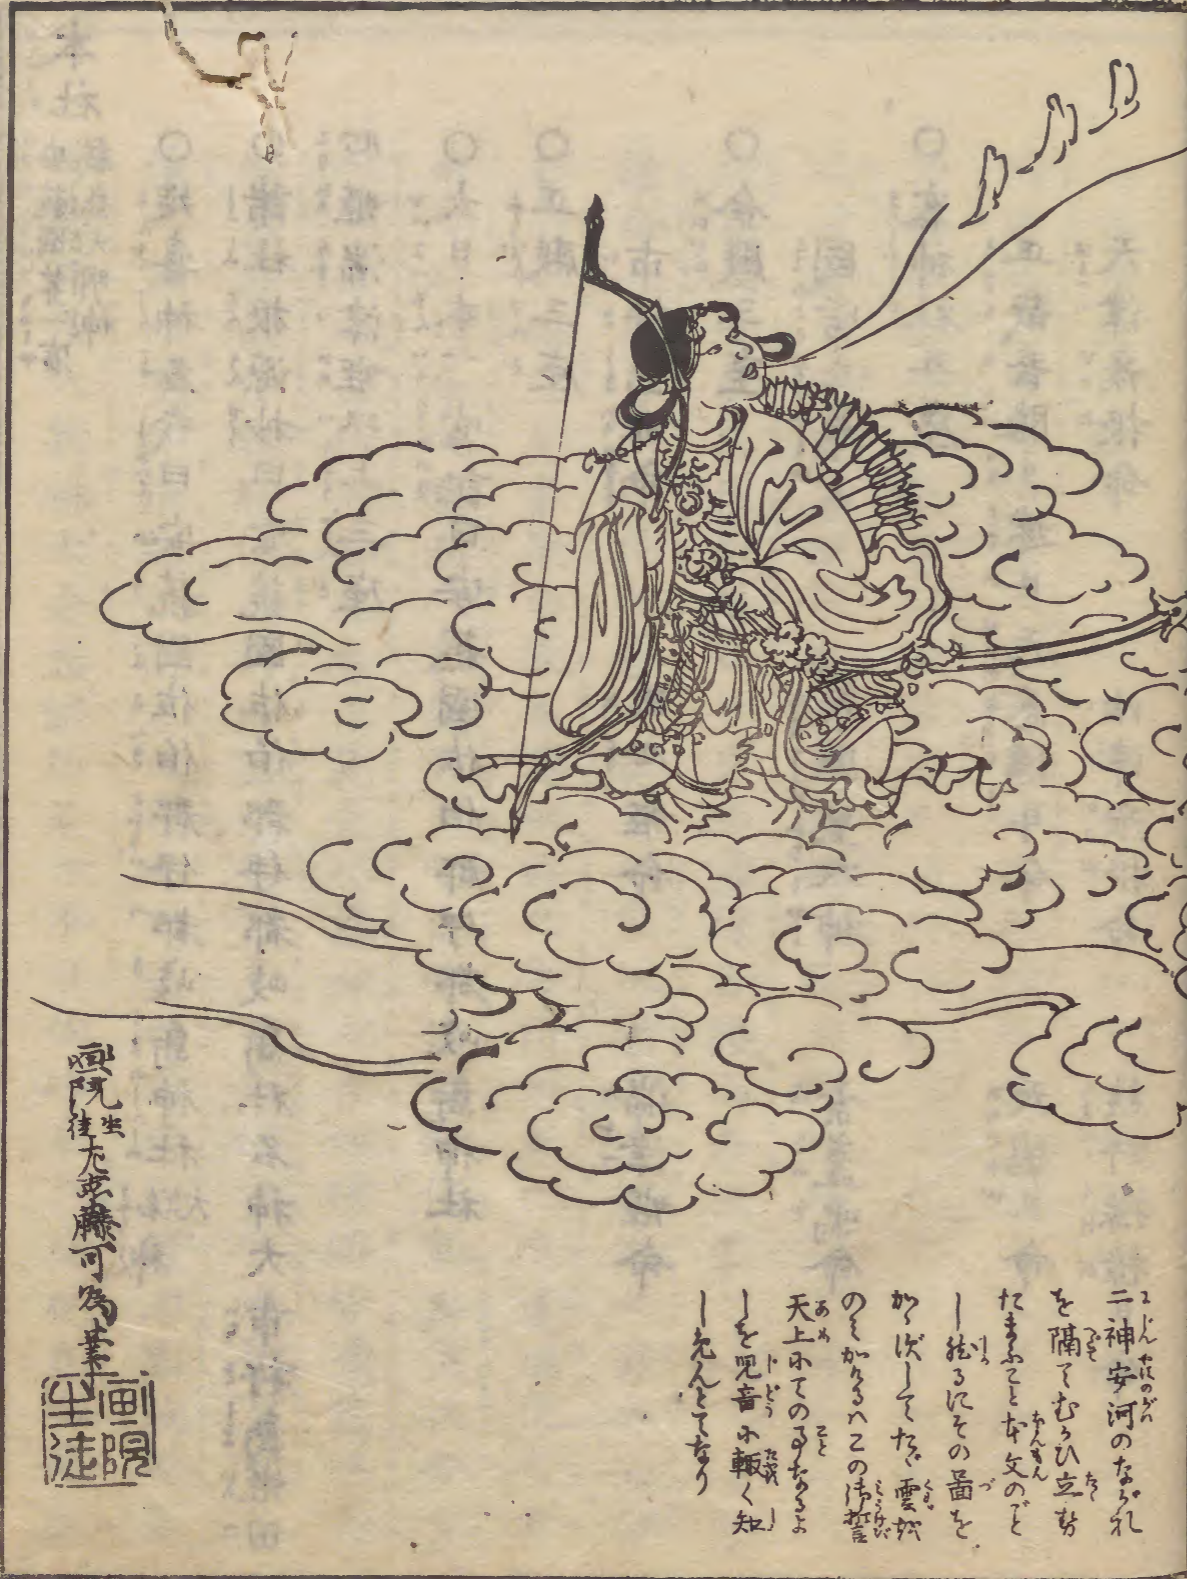 二神安河のながれ
を隔てむかひ立せ
たまふこと本文のごと
し然るにその図を
かゝずしてたゞ雲がた
のみかけるハこの御誓
天上にての事なるよ
しを児童に輙く知
しめんとてなり
画院生徒左藤可為筆
画院
生徒